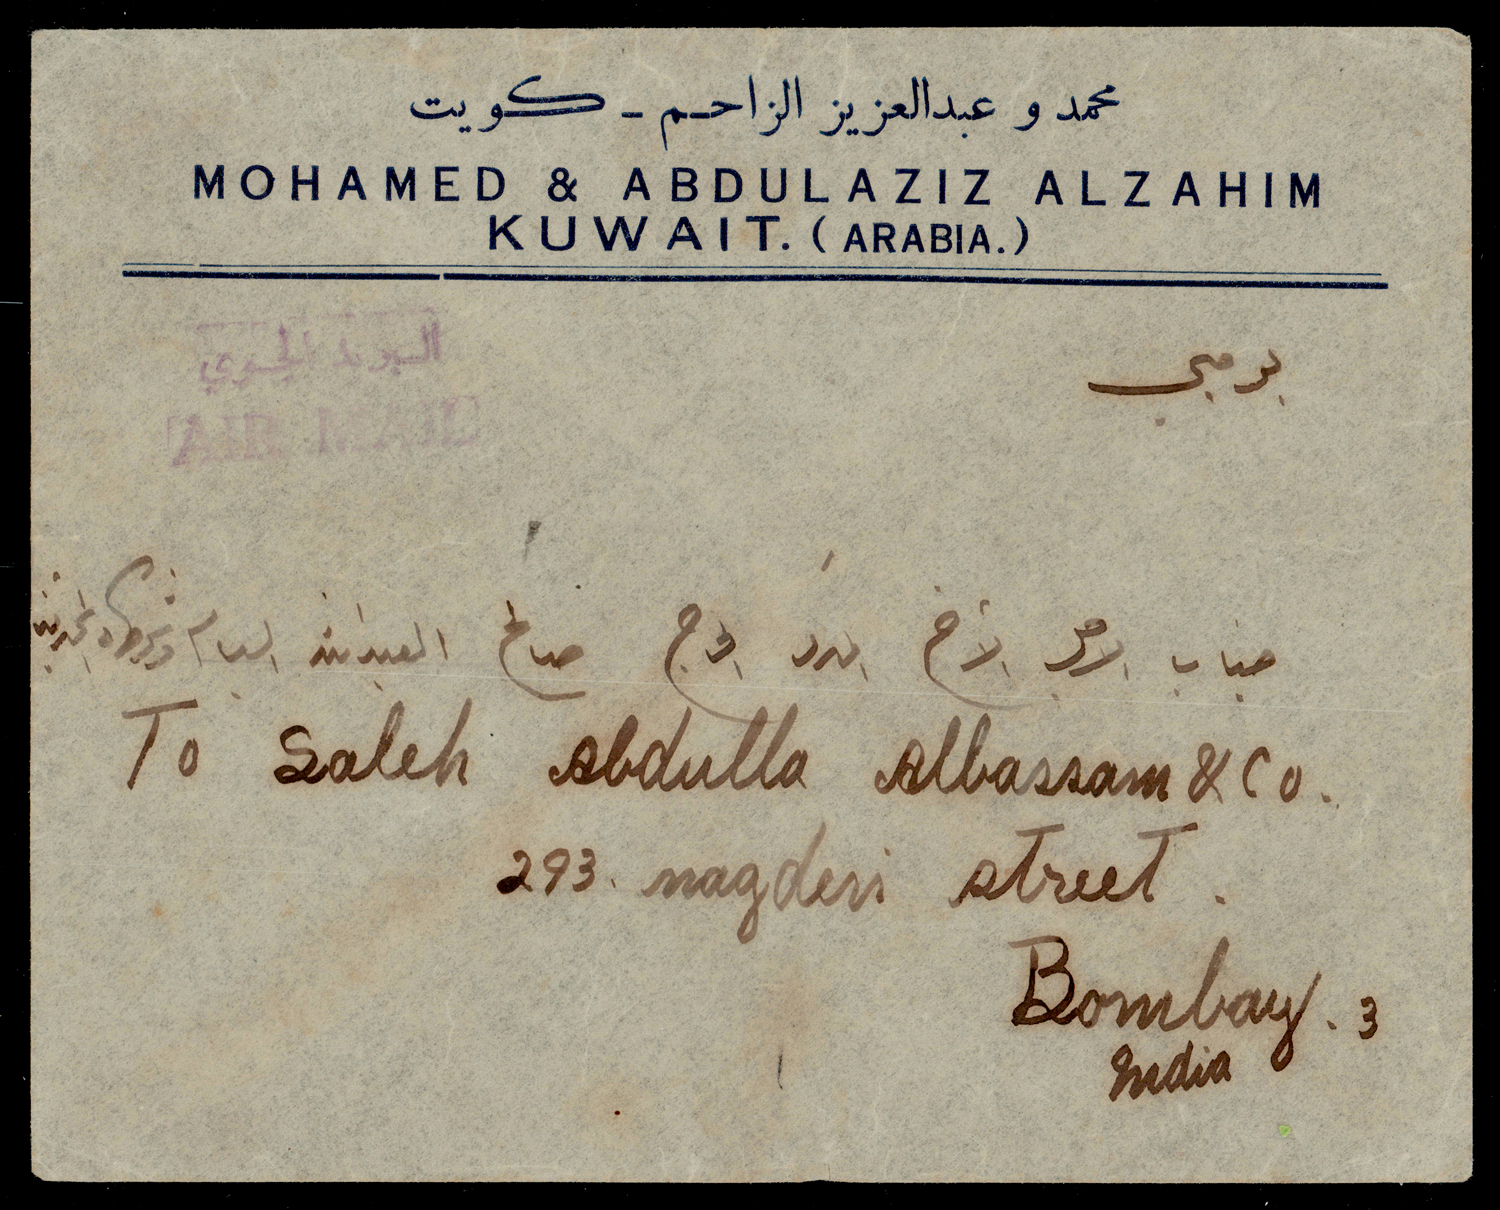 محمد و عبدالعزيز الزاحم - كويت
MOHAMED & ABDULAZIZ ALZAHIM
KUWAIT. (ARABIA.)
البريد الجوي
AIR MAIL
بومبي
جناب الأجل الأخ الحاج صالح العبدالله البسام وشركاه المحترمين
To Saleh Abdulla Albassam & Co.
293. nagdevi street.
Bombay. 3
India